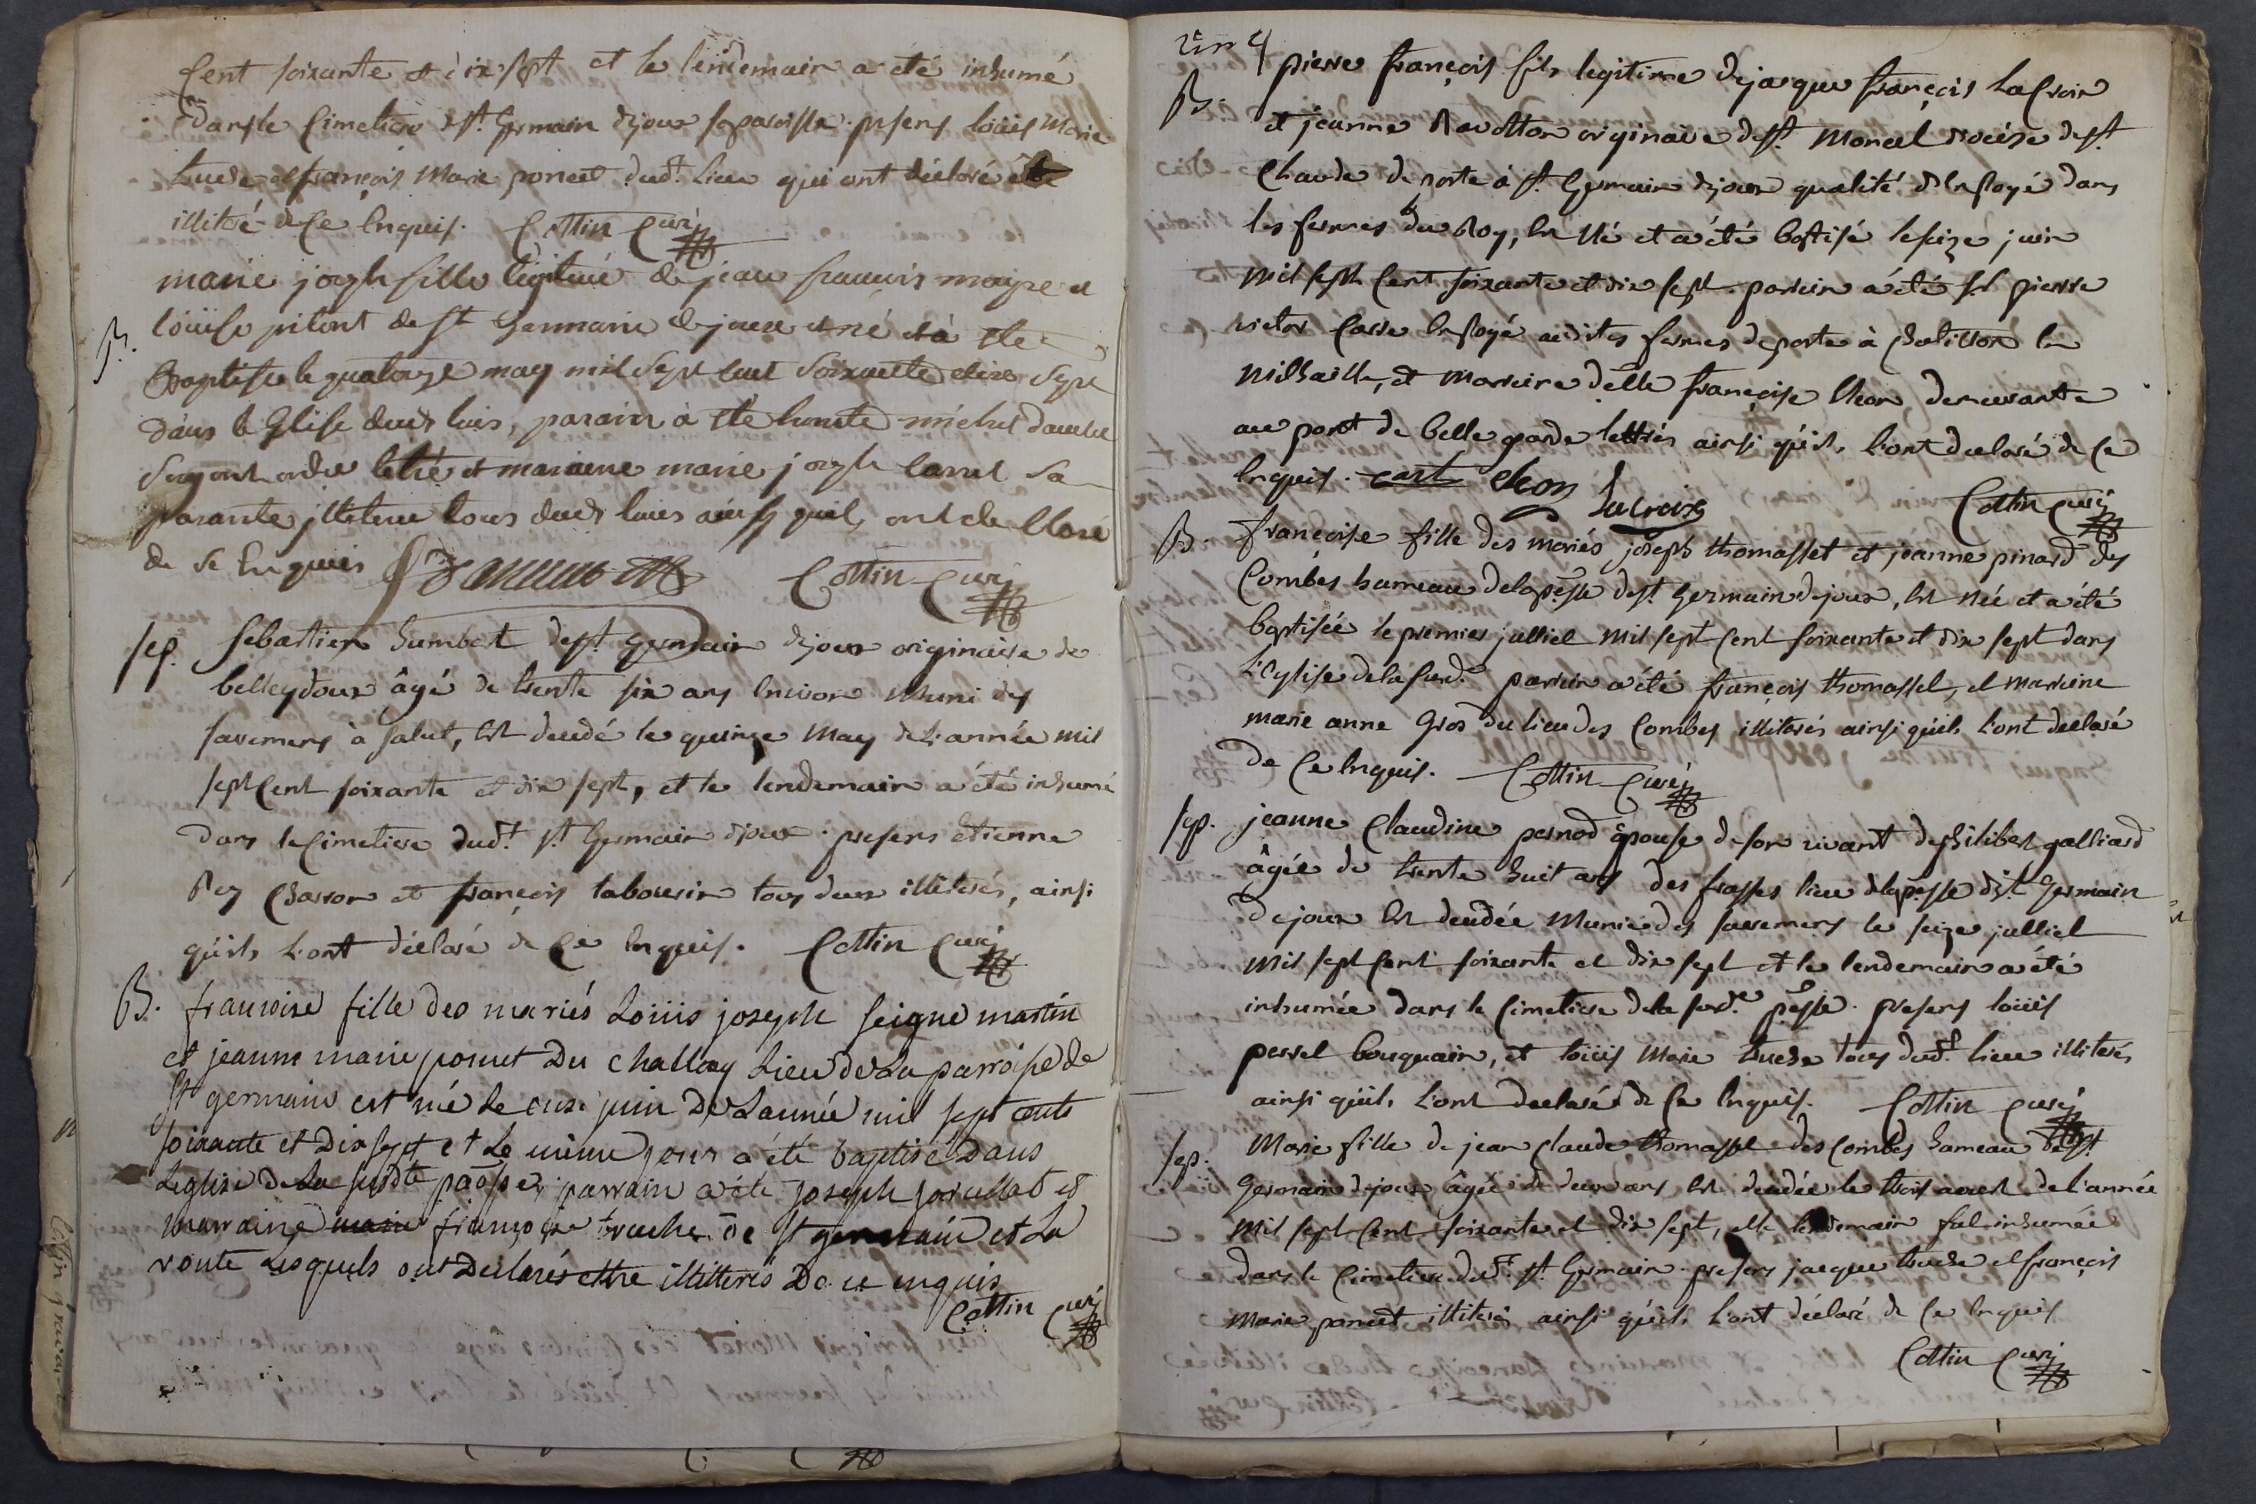 Cent soixante et dix sept et le lendemain a été inhumé
dans le Cimetiere de st. Germain dejoux sa paroisse. presens loüis Marie
tuche et françois Marie poncet dudt. Lieu qui ont déclaré être
illitéré de Ce Enquis. Cottin Curé
B.
marie joseph fille legitime de jean francois moyse et
loüise pilont de st Germain de joux est né et à ete
Baptisee le quatorze may mil sept cent soixante et dix sept
dans le Glise dudt lieu, parain à ete honete michel
letré et maraine marie joseph sa
parante jlleteree tous dudt lieu ainsy quil ont de Claré
de Se Enquis Cottin Curé
sep.
Sebastien humbert de st. Germain dejoux originaire de
belleydoux âgé de trente six ans Environ Muni des
sacremens à salut, Est decedé le quinze May de L'année mil
sept Cent soixante et dix sept, et le lendemain a été inhumé
dans le Cimetiere dudt. st. Germain dejoux. presens étienne
Rey Charron et françois tabourin tous deux illiterés, ainsi
qu'ils L'ont déclaré de Ce Enquis. Cottin Curé
B.
francoise fille des mariés Loüis joseph seigne martin
et jeanne marie poncet Du Challay Lieu de La parroisse de
St germain est née Le onze juin De Lannée mil sept cents
soixante et Dix sept et Le même jour a été baptisé Dans
Leglise de La susdte paosse, parrain a été joseph et
marraine marie françoise truche de st germain et La
voute Lesquels ont Declarés ettre illitterés De ce enquis
Cottin Curé
4
B.
pierre françois fils legitime de jacque françois LaCroix
et jeanne Ravotton originaire de st. Marcel diocèse de st.
Claude de poste à st. Germain dejoux qualité d'Employé dans
les fermes du Roy, Est Né et a été baptisé le seize juin
mil sept Cent soixante et dix sept. parrin a été sr. pierre
victor Carre Employé audites fermes de poste à Chatillon En
Michaille, et Marreine delle. françoise Cleon, demeurante
au pont de bellegarde lettrés ainsi qu'ils L'ont declaré de Ce
Enquis. cart Cleon Lacroix Cottin Curé
B.
françoise fille des mariés joseph thomasset et jeanne pinard des
Combes hameau de la posse de st. Germain dejoux, Est Née et a été
baptisée le premier julliet mil sept Cent soixante et dix sept dans
L'Eglise de la susd. parrein a été françois thomasset, et marreine
marie anne Gros du lieu des Combes illiterés ainsi qu'ils L'ont declaré
de Ce Enquis. Cottin Curé
sep.
jeanne Claudine pernod épouse de son vivant de philibert galliard
âgée de trente huit ans des frasses lieu de la posse de st. Germain
de joux Est decedée Munie des sacremens le seize julliet
mil sept Cent soixante et dix sept et le lendemain a été
inhumée dans le Cimetiere de la susde. posse. presens loüis
perret bouquain, et loüis Marie tuche tous dudt. lieu illiterés
ainsi qu'ils L'ont declaré de Ce Enquis. Cottin Curé
sep.
Marie fille de jean Claude thomasset des Combes hameau de st.
Germain dejoux âgée de deux ans Est decedée le trois aoust de L'année
mil sept Cent soixante et dix sept, et le lendemain fut inhumée
dans le Cimetiere dudt. st. Germain. presens jacque tuche et françois
Marie poncet illiterés ainsi qu'ils L'ont déclaré de Ce Enquis
Cottin Curé